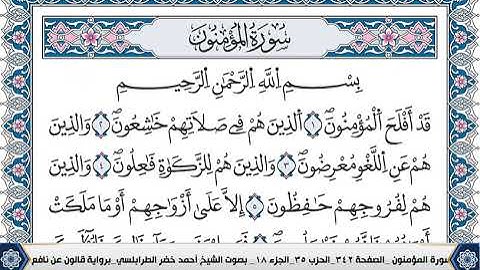 سُورَةُ الْمُؤْمِنُونَ
بِسْمِ اِللَّهِ اِلرَّحْمَٰنِ اِلرَّحِيمِ
قَدْ أَفْلَحَ اَلْمُؤْمِنُونَ ١ اَلذِينَ هُمْ فِي صَلَاتِهِمْ خَٰشِعُونَ ٢ وَالذِينَ
هُمْ عَنِ اِللَّغْوِ مُعْرِضُونَ ٣ وَالذِينَ هُمْ لِلزَّكَوٰةِ فَٰعِلُونَ ٤ وَالذِينَ
هُمْ لِفُرُوجِهِمْ حَٰفِظُونَ ٥ إِلَّا عَلَىٰ أَزْوَٰجِهِمْ أَوْ مَا مَلَكَتْ
سورة المؤمنون _الصفحة ٣٤٢_ الحزب ٣٥_الجزء ١٨_ بصوت الشيخ أحمد خضر الطرابلسي _برواية قالون عن نافع